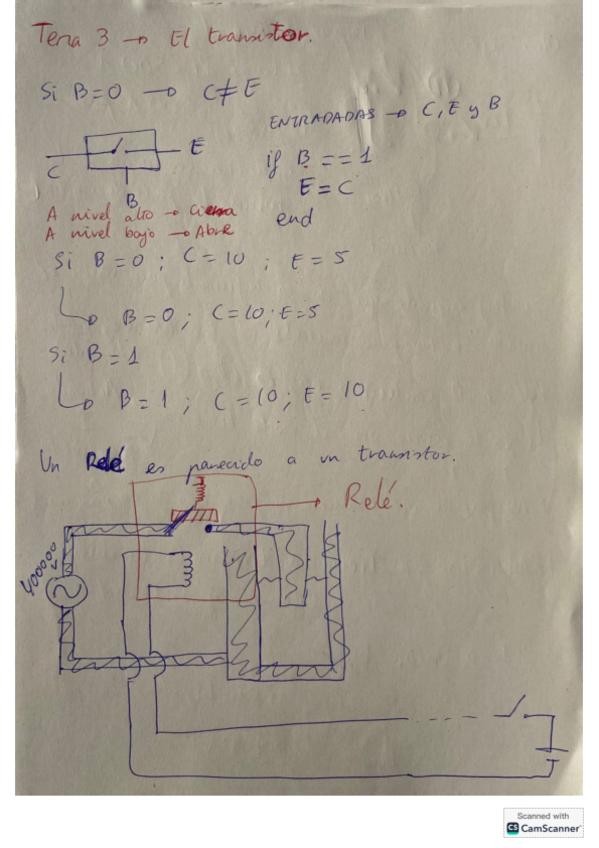 Tema 3 → El transistor.
Si B=0 → C≠E
ENTRADADAS → C, E y B
if B == 1
E = C
end
C
E
B
A nivel alto → Cierra
A nivel bajo → Abre
Si B=0 ; C=10 ; E=5
B=0; C=10; E=5
Si B=1
B=1 ; C=10; E=10
Un Relé es parecido a un transistor.
Relé.
400000 V
Scanned with
CS CamScanner